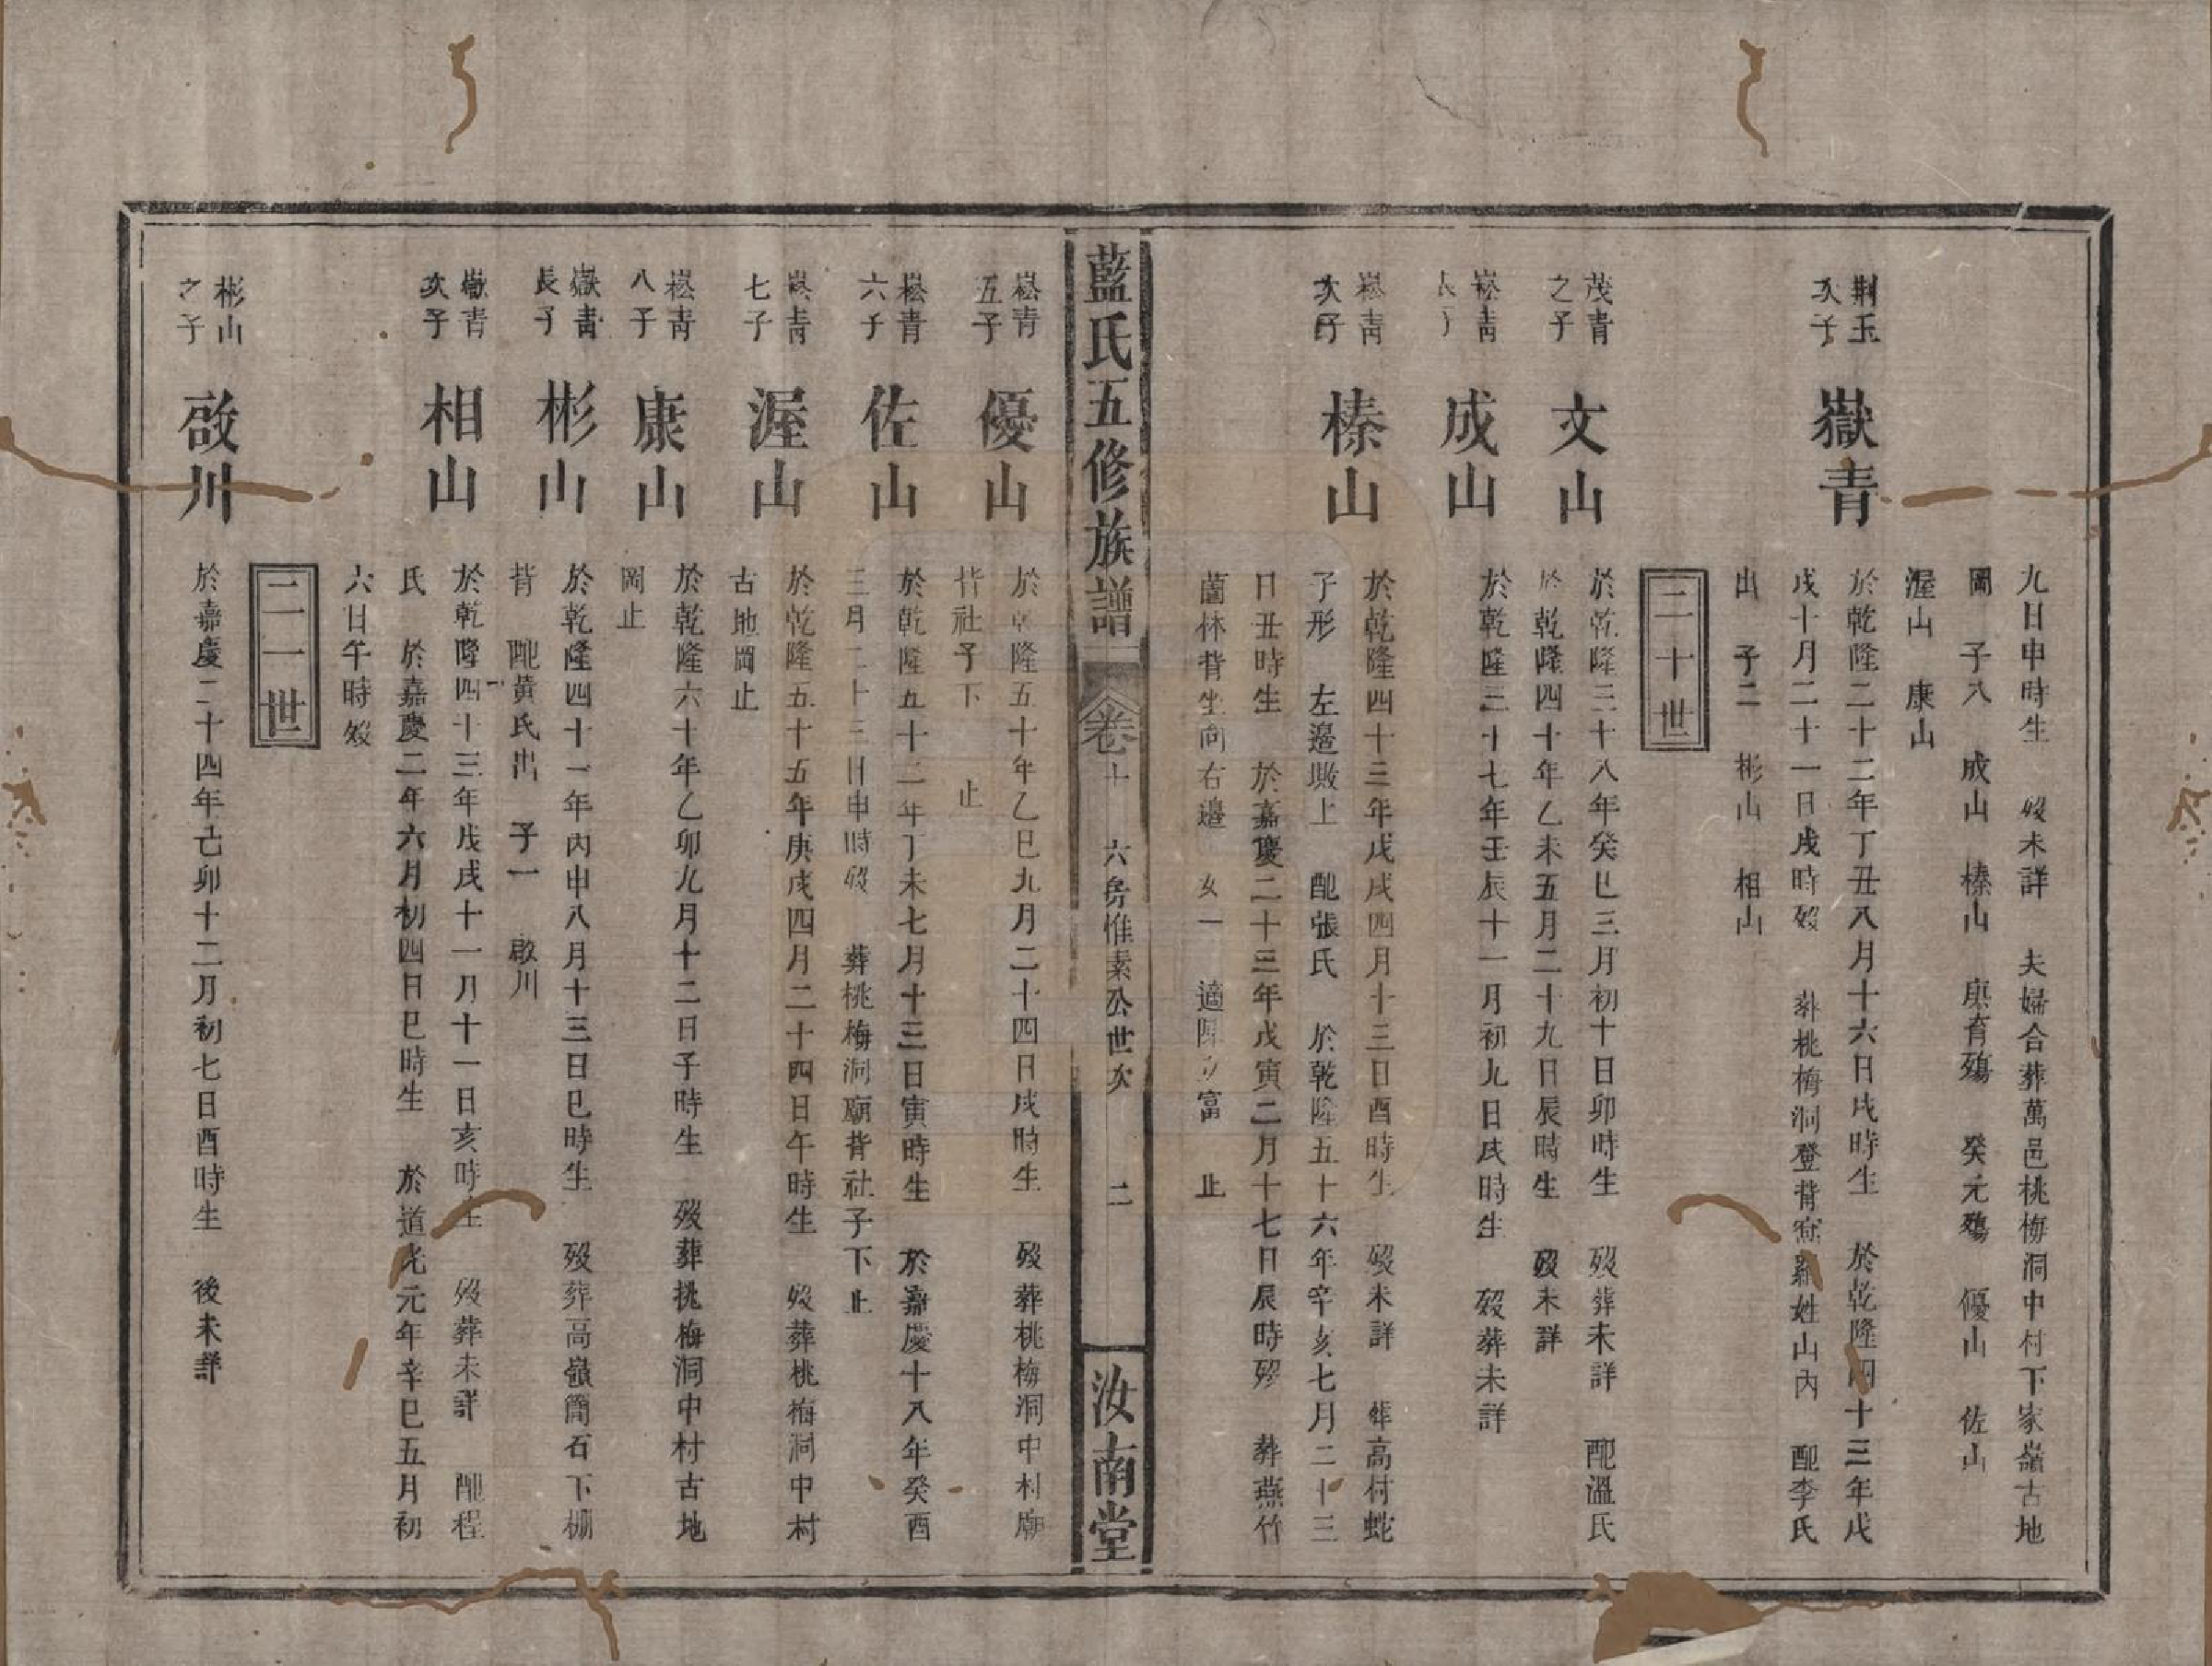 九日申時生 歿未詳 夫婦合葬萬邑桃梅洞中村下家嶺古地
岡 子八 成山 榛山 庚育殤 癸元殤 優山 佐山
渥山 康山
荆玉次子 嶽青 於乾隆二十二年丁丑八月十六日戌時生 於乾隆四十三年戊
戌十月二十一日戌時歿 葬桃梅洞登背窩羅姓山內 配李氏
出 子二 彬山 相山
二十世
茂青之子 文山 於乾隆三十八年癸巳三月初十日卯時生 歿葬未詳 配溫氏
於乾隆四十年乙未五月二十九日辰時生 歿未詳
崧青長子 成山 於乾隆三十七年壬辰十一月初九日戌時生 歿葬未詳
崧青次子 榛山 於乾隆四十三年戊戌四月十三日酉時生 歿未詳 葬高村蛇
子形 左邊墩上 配張氏 於乾隆五十六年辛亥七月二十三
日丑時生 於嘉慶二十三年戊寅二月十七日辰時歿 葬燕竹
薗林背坐向右邊 女一 適陳 富 止
藍氏五修族譜 卷十 六房惟素公世次 二 汝南堂
崧青五子 優山 於乾隆五十年乙巳九月二十四日戌時生 歿葬桃梅洞中村廟
背社子下 止
崧青六子 佐山 於乾隆五十二年丁未七月十三日寅時生 於嘉慶十八年癸酉
三月二十三日申時歿 葬桃梅洞廟背社子下止
崧青七子 渥山 於乾隆五十五年庚戌四月二十四日午時生 歿葬桃梅洞中村
古地岡止
崧青八子 康山 於乾隆六十年乙卯九月十二日子時生 歿葬桃梅洞中村古地
岡止
嶽青長子 彬山 於乾隆四十一年丙申八月十三日巳時生 歿葬高嶺簡石下棚
背 配黃氏出 子一 啟川
嶽青次子 相山 於乾隆四十三年戊戌十一月十一日亥時生 歿葬未詳 配程
氏 於嘉慶二年六月初四日巳時生 於道光元年辛巳五月初
六日午時歿
二一世
彬山之子 啟川 於嘉慶二十四年己卯十二月初七日酉時生 後未詳